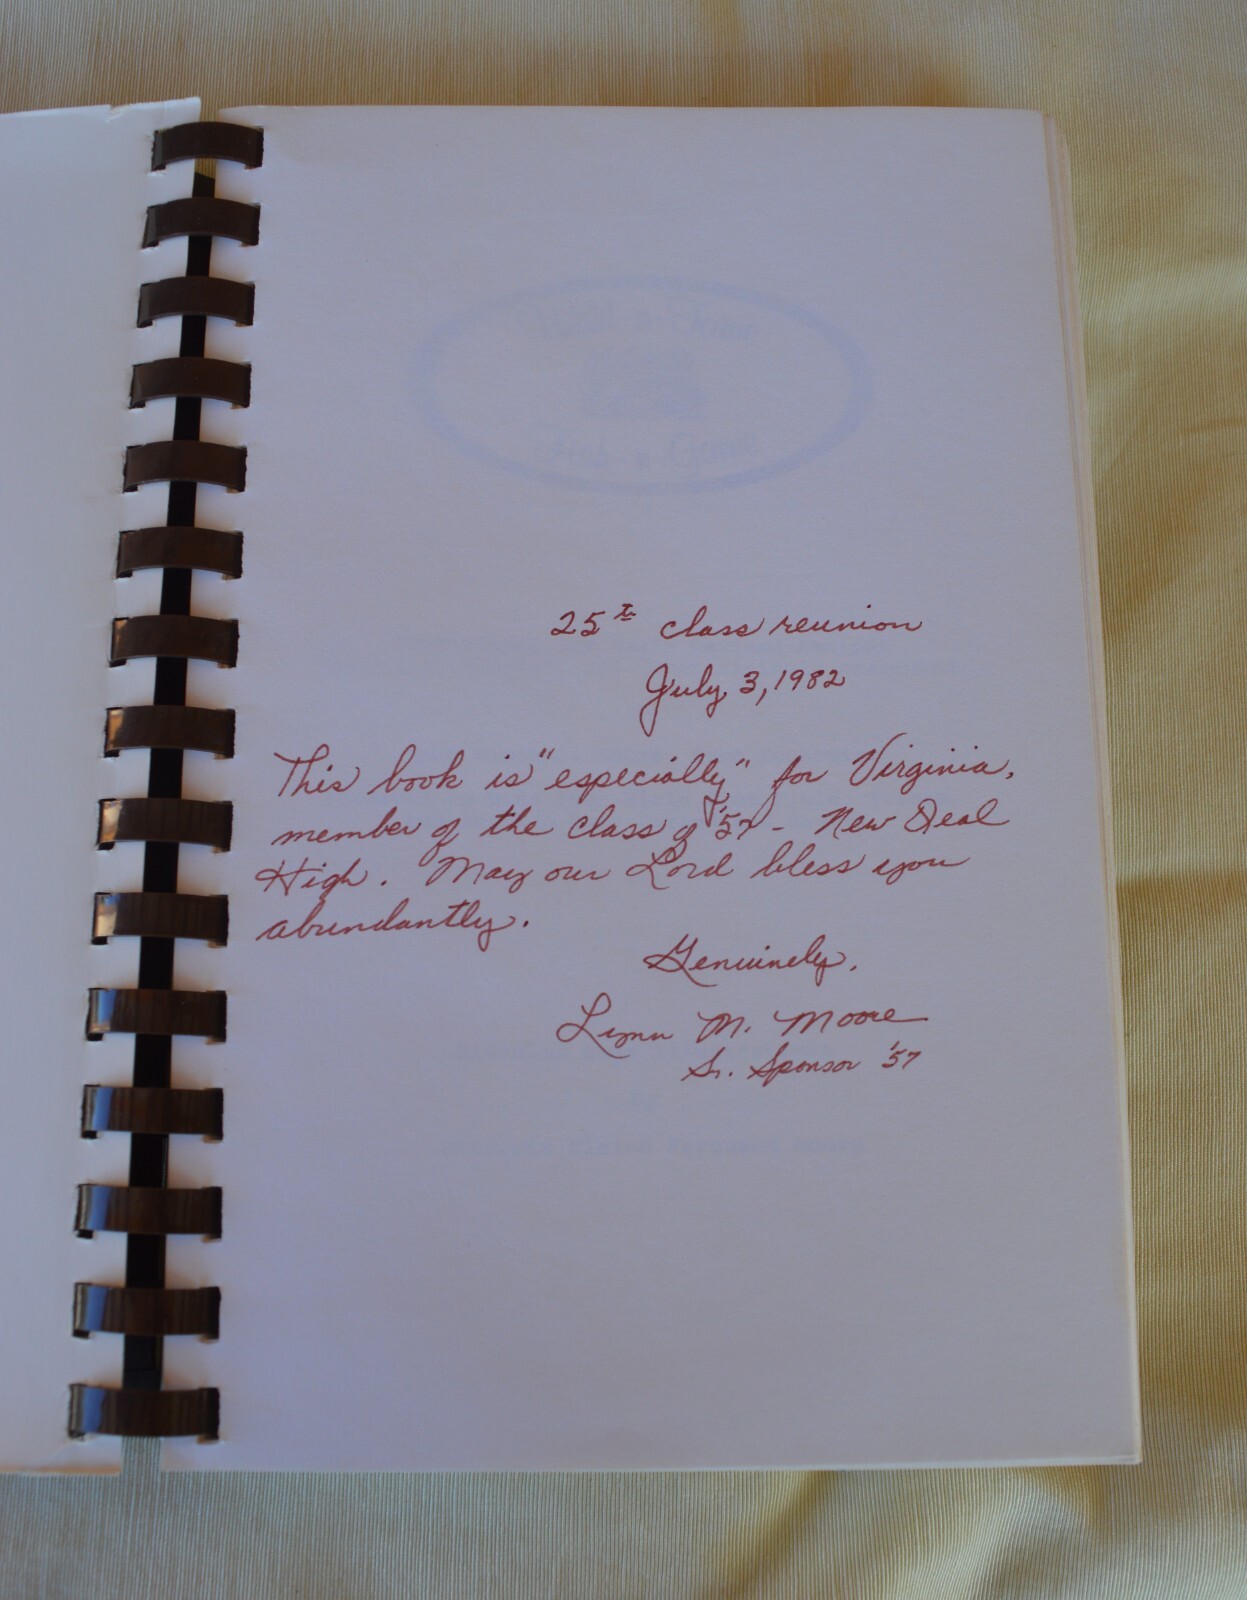 25th class reunion
July 3, 1982
This book is "especially" for Virginia,
member of the class of '57 - New Deal
High. May our Lord bless you
abundantly.
Genuinely,
Lynn M. Moore
Sr. Sponsor '57